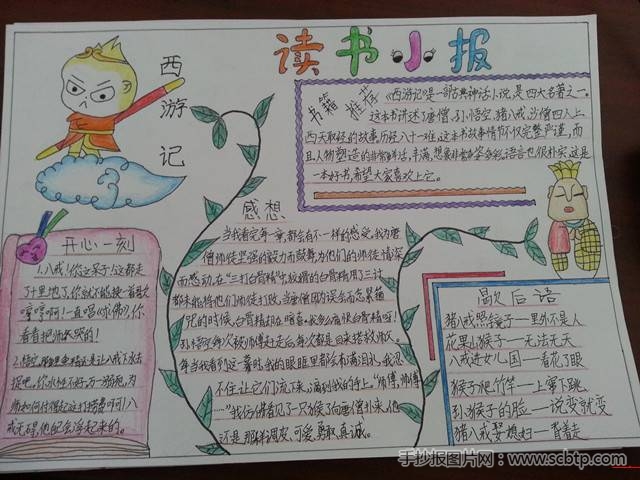 读书小报
西游记
书籍推荐
《西游记》是一部古典神话小说,是四大名著之一。
这本书讲述了唐僧、孙悟空、猪八戒、沙僧四人上
西天取经的故事历经八十一难,这本书故事情节仅完整严谨,而
且人物塑造的非常鲜活、丰满,想象非常多姿多彩,语言也很朴实,这是
一本好书,希望大家喜欢上它。
感想
当我看完每一章,都会有不一样的感受,我为唐
僧师徒坚强的毅力而鼓舞为他们的师徒情深
而感动,在“三打白骨精”中,狡猾的白骨精用了三计
咒的时候,白骨精却在暗喜。
年当我看到这一幕时,我的眼眶里都会有满泪水,我忍
不住让它们流下来,滴到我的手上。“师傅,师傅
……”我仿佛看见了一只猴子向唐僧扑来,他
还是那样调皮、可爱、勇敢、真诚。
开心一刻
1.八戒!你这呆子!这都走
了十里地了,你就不能换一首歌
哼哼啊!一直唱《佛》,你
看看把师父哭的!
歇后语
猪八戒照镜子——里外不是人
花果山猴子——无法无天
八戒进女儿国——看花了眼
猴子爬竹竿——上窜下跳
孙猴子的脸——说变就变
猪八戒娶媳妇——背着走
手抄报图片网:www.scbtp.com